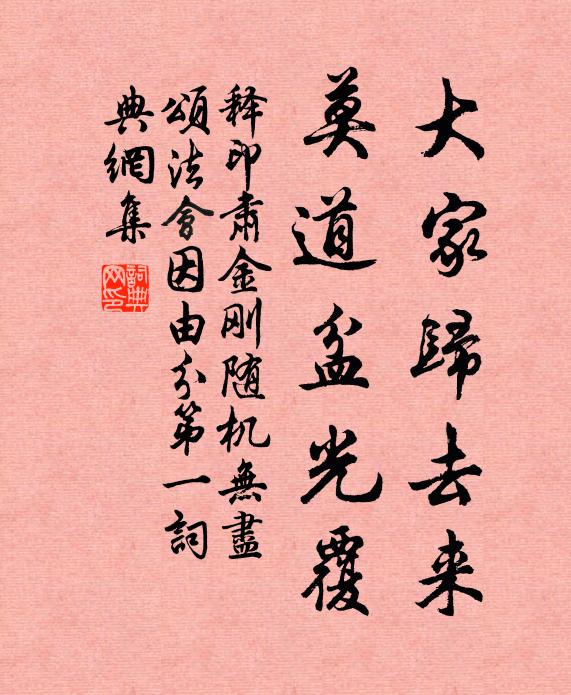 大家歸去来
莫道盆光覆
释印肃金刚随机無盡
頌法會因由分第一詞
典網集
詞典网印